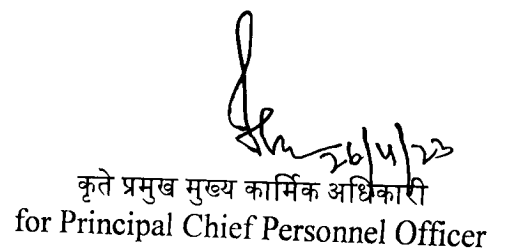 26/4/23
कृते प्रमुख मुख्य कार्मिक अधिकारी
for Principal Chief Personnel Officer